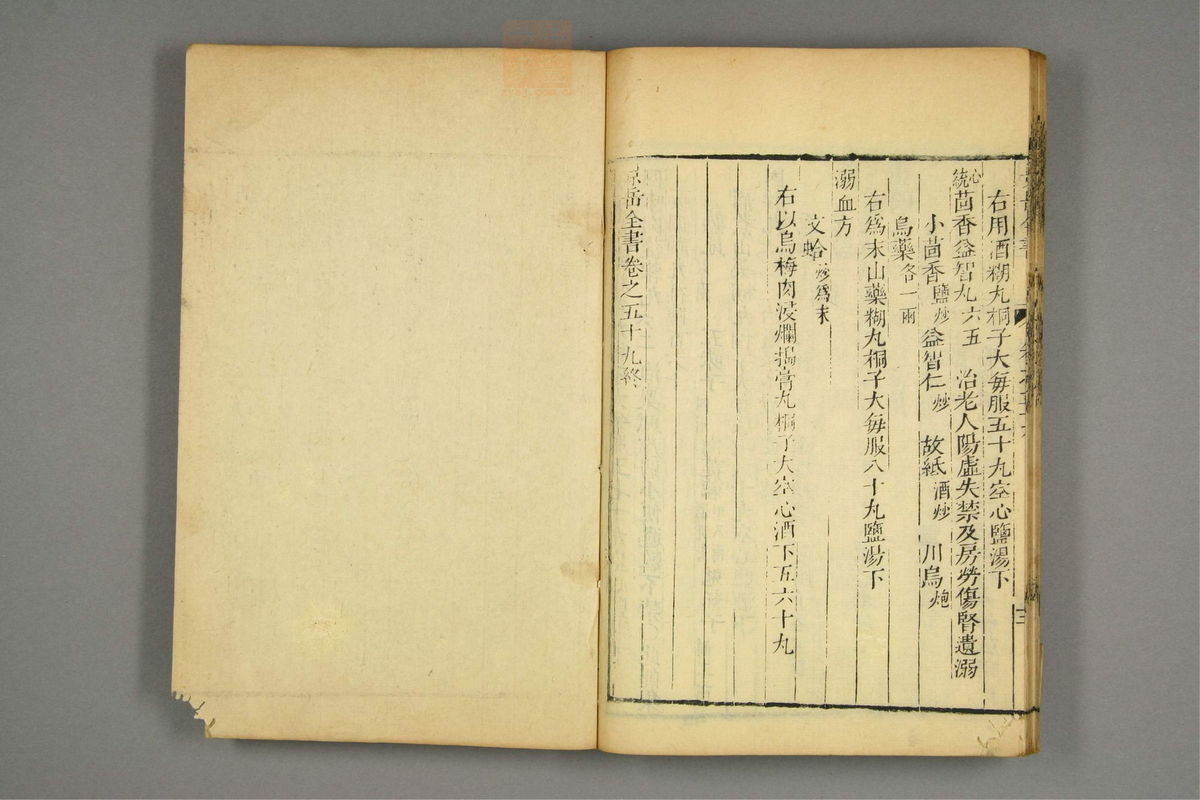 右用酒糊丸桐子大每服五十丸空心鹽湯下
心統茴香益智丸六五 治老人陽虛失禁及房勞傷腎遺溺
小茴香鹽炒 益智仁炒 故紙酒炒 川烏炮
烏藥各一兩
右爲末山藥糊丸桐子大每服八十丸鹽湯下
溺血方
文蛤炒爲末
右以烏梅肉浸爛搗膏丸桐子大空心酒下五六十丸
景岳全書卷之五十九終